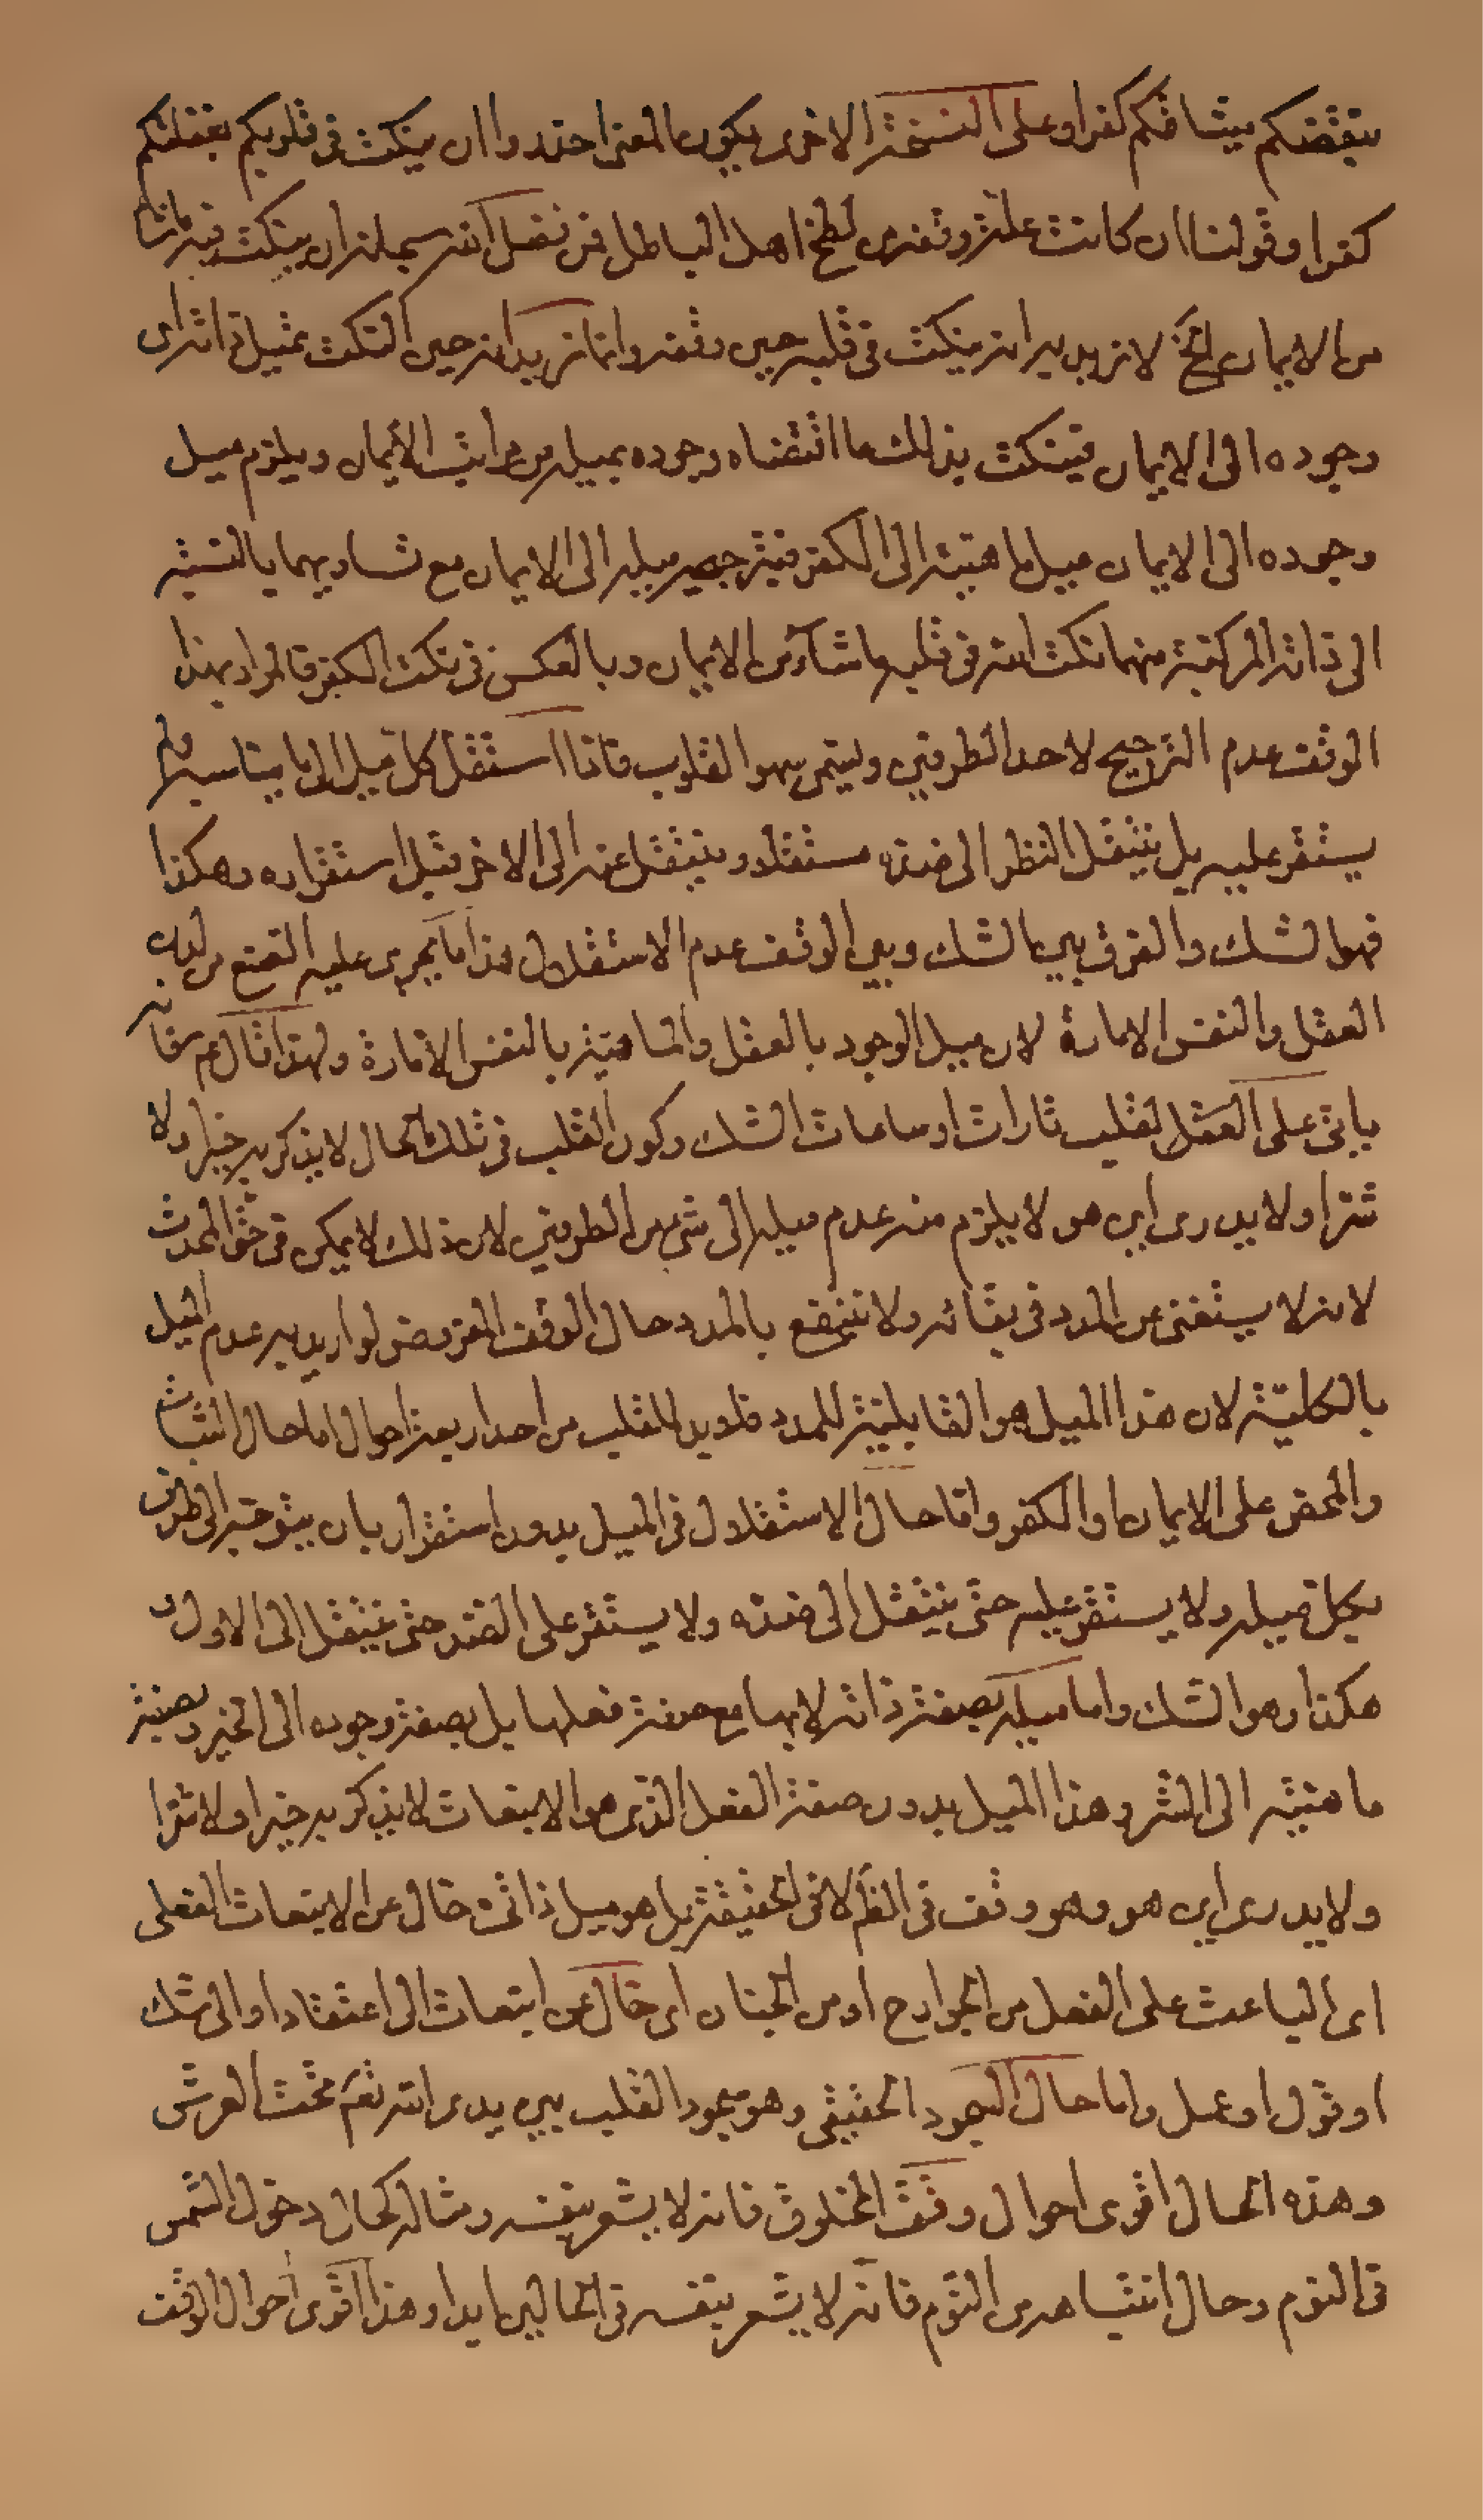 بنقضكم ميثاقكم كفرا وعلى النسخة الاخرى يكون المعنى احذروا ان ينكت في قلوبكم بغفلتكم
كفرا وقولنا ان كانت علته وتغذى لطخ اهل الباطل في نقل الله سبحانه ان ينكت فيه ما شاء
من الايمان الخ لا نريد به انه ينكت في قلبه حين وقفه وانما نريد انه حين النكت تميل ذاته اى
وجوده الى الايمان فينكت بذلك ما اقتضاه وجوده بميله من مراتب الايمان ويلزم ميل
وجوده الى الايمان ميل ماهيته الى الكفر فيترجح ميله الى الايمان مع تساويهما بالنسبة
الى ذاته المركبة منهما نكت الله في قلبه ما شاء من الايمان وبالعكس في نكت الكفر فالمراد بهذا
الوقف عدم الترجيح لاحد الطرفين وليس سهو القلوب فاذا استقل كل ميل الى ما يناسبه ولم
يستقر عليه بل ينتقل النظر الى ضده مستقلا وينتقل عنه الى الاخر قبل استقراره وهكذا
فهو الشك والفرق بين الشك وبين الوقف عدم الاستقلال هذا ما يجرى عليه القلب من
العقل والنفس الامارة لان ميل الوجود بالعقل والماهية بالنفس الامارة ولهذا قال ع م فانه
ياتى على القلب تارات او ساعات الشك وكون القلب في تلك الحال لا يذكر به خيرا ولا
شرا ولا يدرى اين هو لا يلزم منه عدم ميله الى شىء من الطرفين لان ذلك لا يمكن في حق المحدث
لانه لا يستغنى عن المدد في بقائه ولا ينتفع بالمدد حال الوقف المفروض لو اريد به عدم الميل
بالكلية لان هذا الميل هو القابلية للمدد فلا بد للقلب من احد اربعة احوال اما حال الثبات
والمحض على الايمان او الكفر واما حال الاستقلال في الميل بدون استقرار بان يتوجه الى طرف
بكل ميله ولا يستقر عليه حتى ينتقل الى ضده ولا يستقر على الضد حتى ينتقل الى الاول و
هكذا وهو الشك واما ميله بصفة ذاته لا بها مع صفة فعلها بل بصفة وجوده الى الخير وبصفة
ماهيته الى الشر وهذا الميل بدون صفة الفعل الذى هو الانبعاث لا يذكر به خيرا ولا شرا
ولا يدرى اين هو وهو وقف في الظم لا في الحقيقة بل هو ميل ذاتى خال عن الانبعاث الفعلى
اى الباعث على الفعل من الجوارح او من الجنان اى خال عن انبعاث الى اعتقاد او الى شك
او قول او عمل واما حال السجود الحقيقى وهو سجود القلب بين يدى الله تعم تحت العرش
وهذه الحال اقوى احوال وقف المخلوق فانه لا يشعر بنفسه ومثاله كحال دخول الشمس
في النوم وحال انتباهه من النوم فانه لا يشعر بنفسه في الحالين ابدا وهذا اقوى احوال الوقف